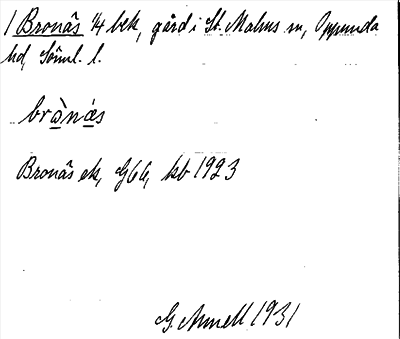 1 Bronäs 1/4 bek, gård i St. Malms sn, Oppunda
hd, Söml. l.
brò̱nä́s
Bronäs ek, G66, kb 1923
G. Armell 1931